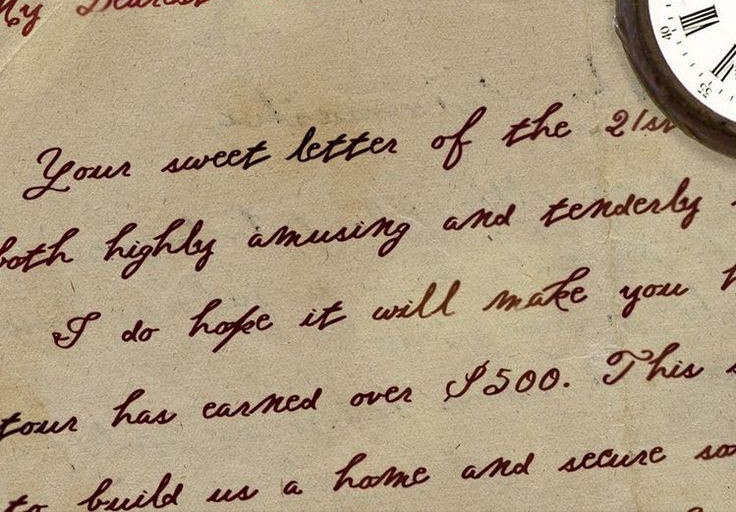 My Dearest
Your sweet letter of the 21st
both highly amusing and tenderly
I do hope it will make you
tour has earned over $500. This
to build us a home and secure